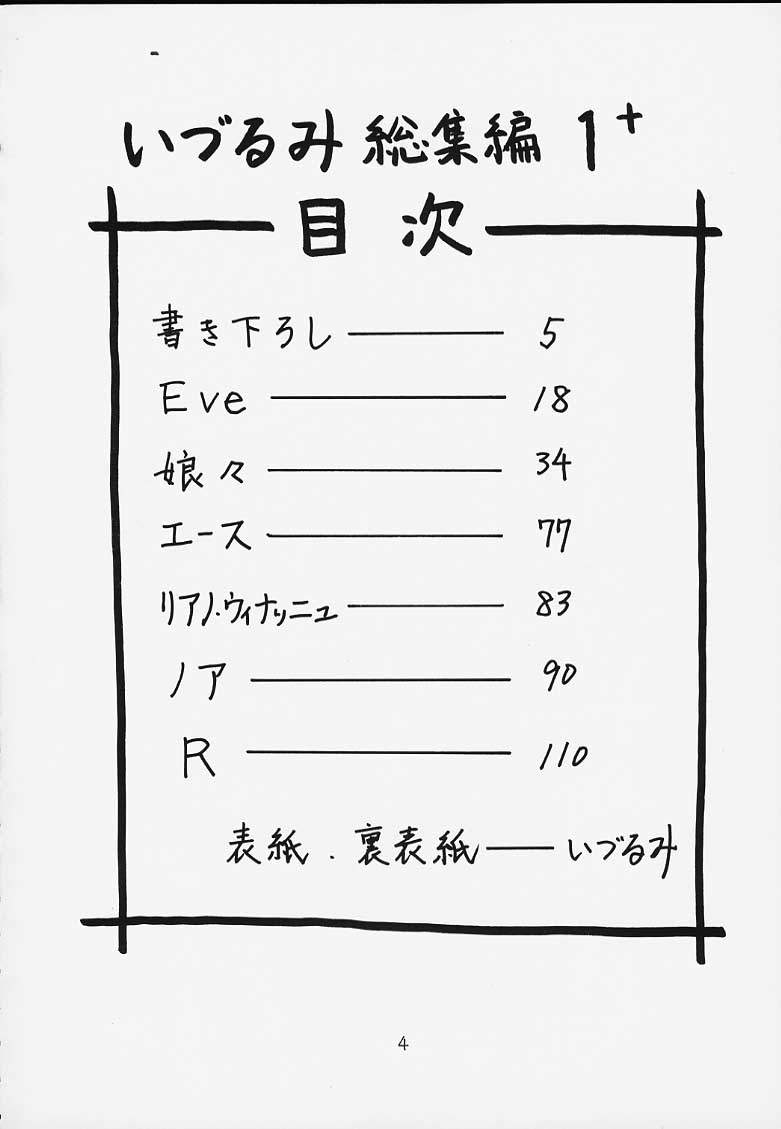 いづるみ 総集編 1+
目次
書き下ろし 5
Eve 18
娘々 34
エース 77
リアノ・ウィナッニュ 83
ノア 90
R 110
表紙．裏表紙 いづるみ
4